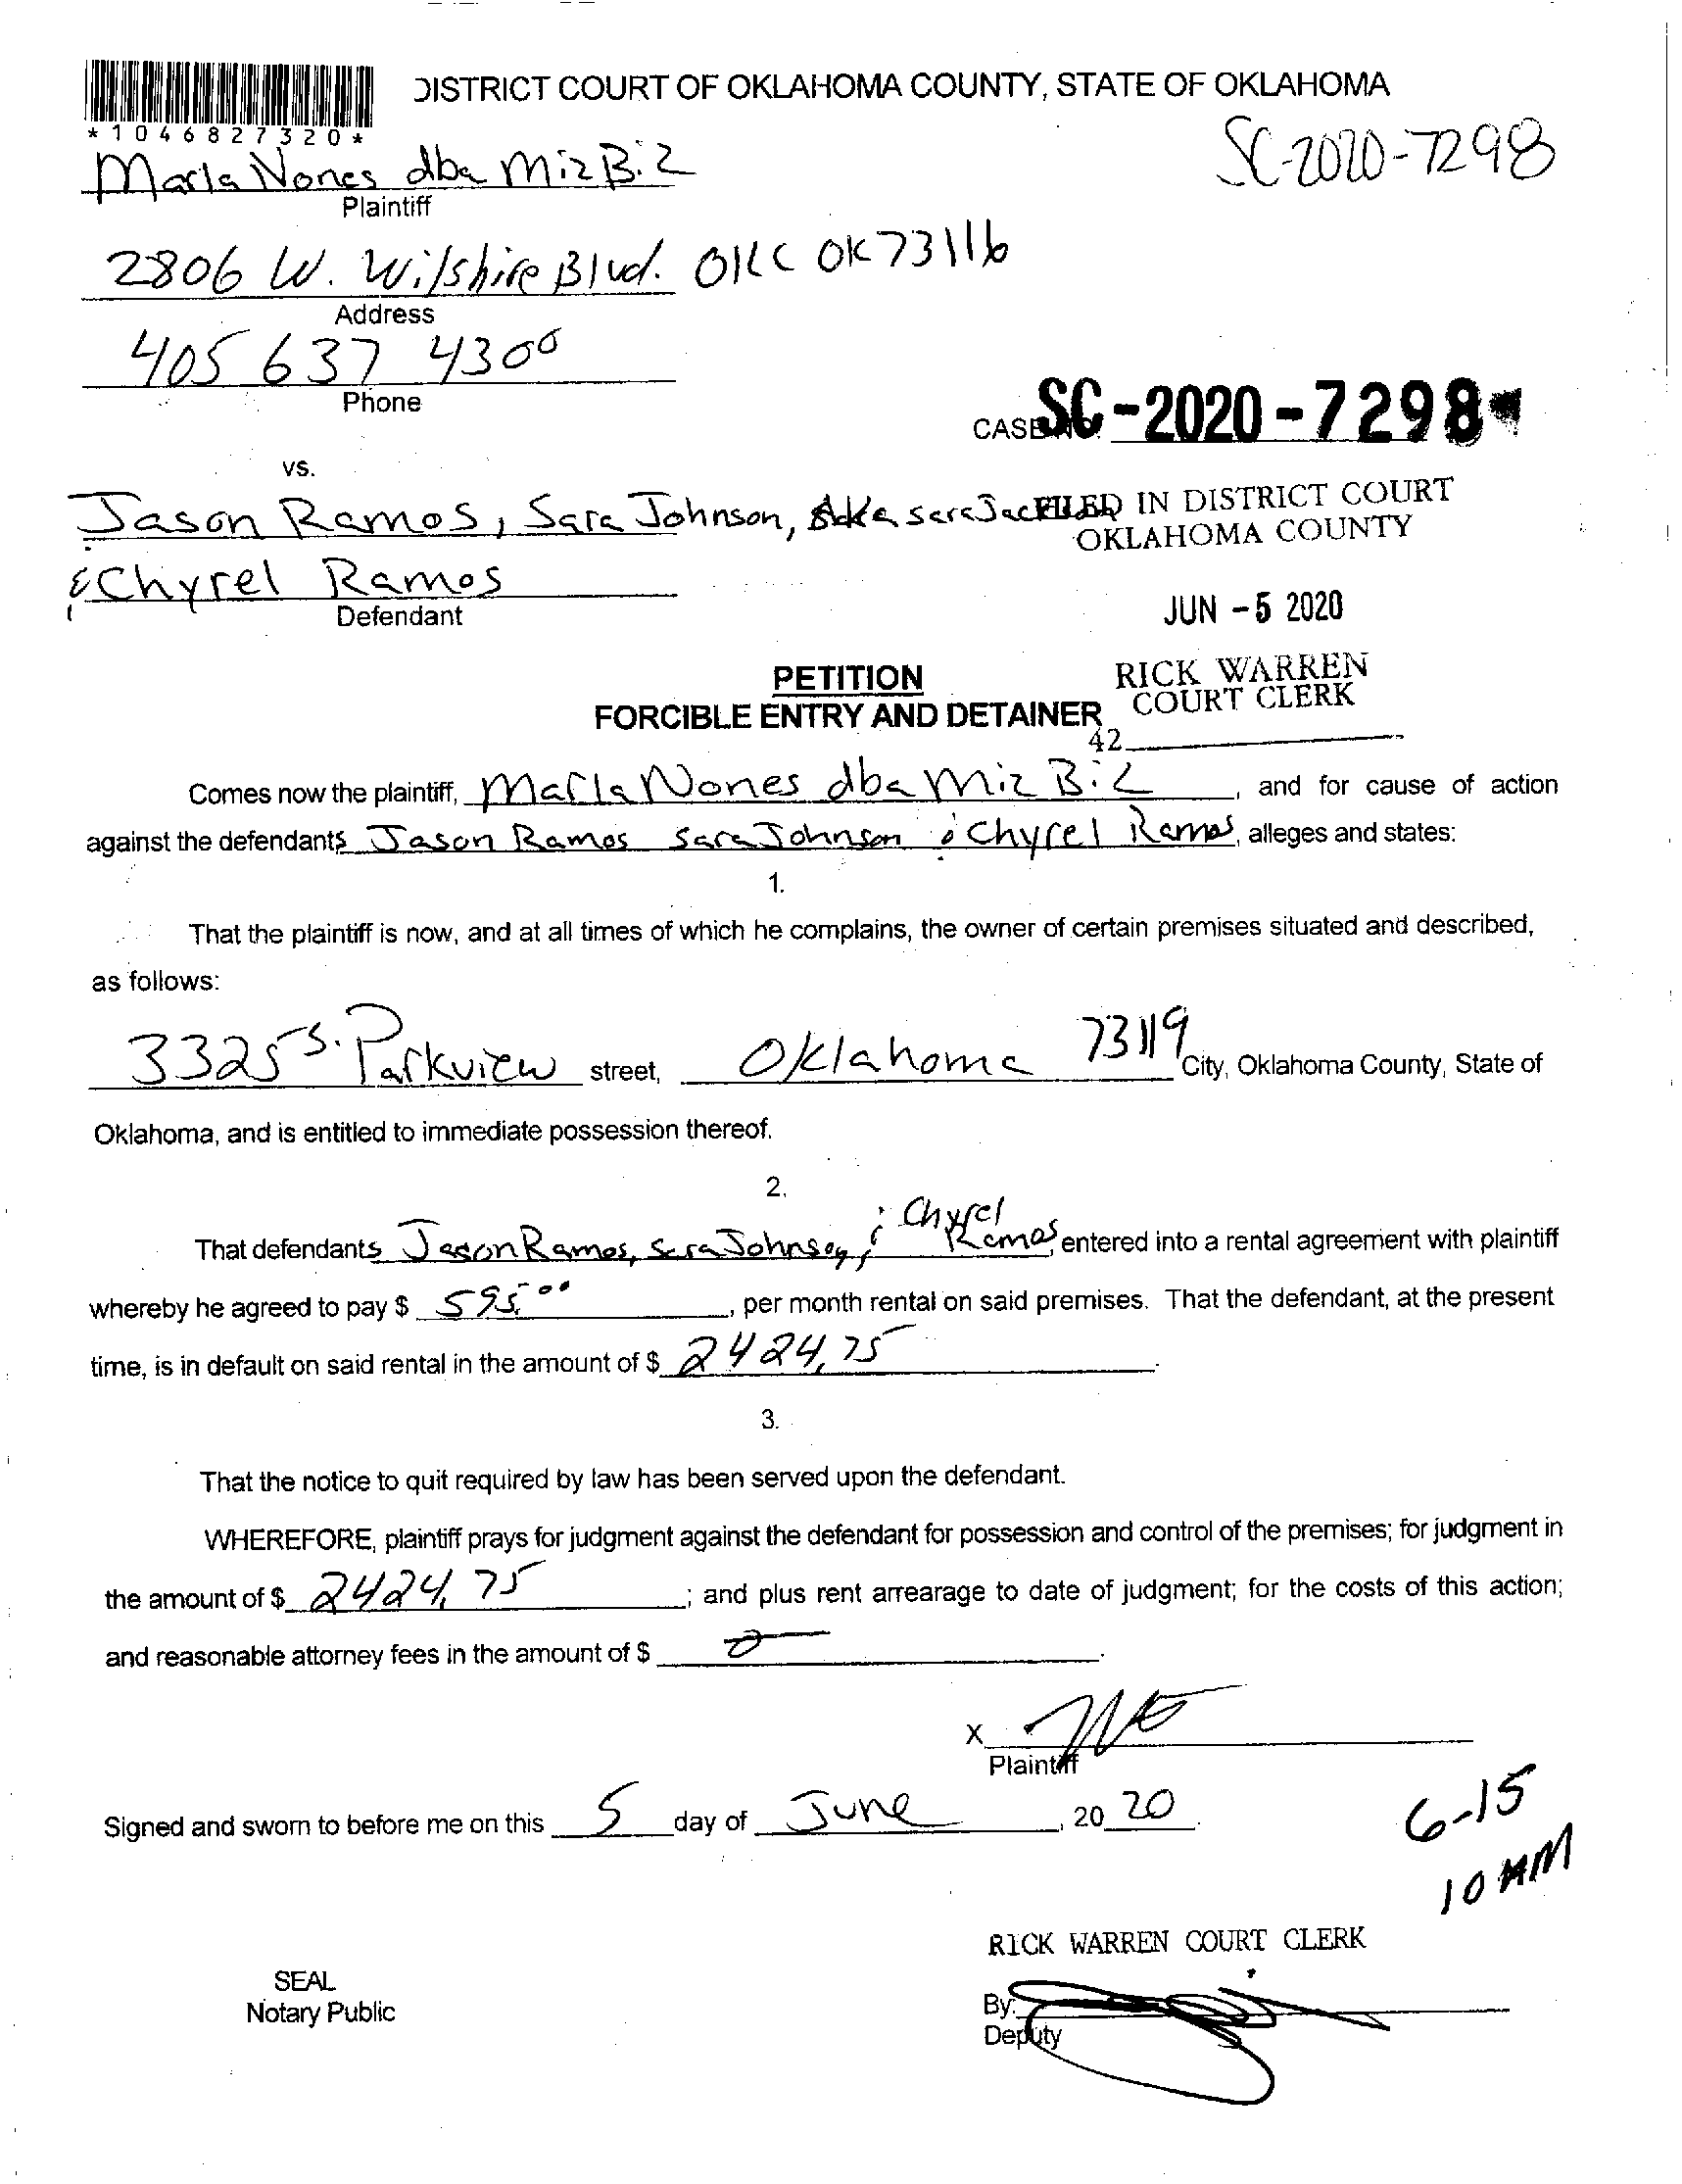 DISTRICT COURT OF OKLAHOMA COUNTY, STATE OF OKLAHOMA
*1046827320*
SC-2020-7298
Marla Nones dba Miz Biz
Plaintiff
2806 W. Wilshire Blvd. OKC OK 73116
Address
405 637 4300
Phone
CASE SC-2020-7298
vs.
Jason Ramos, Sara Johnson, Aka Sara
FILED IN DISTRICT COURT
OKLAHOMA COUNTY
& Chyrel Ramos
Defendant
JUN -5 2020
PETITION
RICK WARREN
COURT CLERK
FORCIBLE ENTRY AND DETAINER
42
Comes now the plaintiff, Marla Nones dba Miz Biz, and for cause of action
against the defendants Jason Ramos Sara Johnson & Chyrel Ramos, alleges and states:
1.
That the plaintiff is now, and at all times of which he complains, the owner of certain premises situated and described,
as follows:
3325 S. Parkview street, Oklahoma 73119 City, Oklahoma County, State of
Oklahoma, and is entitled to immediate possession thereof.
2.
That defendants Jason Ramos, Sara Johnson, & Chyrel Ramos, entered into a rental agreement with plaintiff
whereby he agreed to pay $ 595.00, per month rental on said premises. That the defendant, at the present
time, is in default on said rental in the amount of $ 2424.75.
3.
That the notice to quit required by law has been served upon the defendant.
WHEREFORE, plaintiff prays for judgment against the defendant for possession and control of the premises; for judgment in
the amount of $ 2424.75; and plus rent arrearage to date of judgment; for the costs of this action;
and reasonable attorney fees in the amount of $ 0.
X
Plaintiff
Signed and sworn to before me on this 5 day of June, 20 20.
6-15
10 AM
RICK WARREN COURT CLERK
SEAL
Notary Public
By:
Deputy